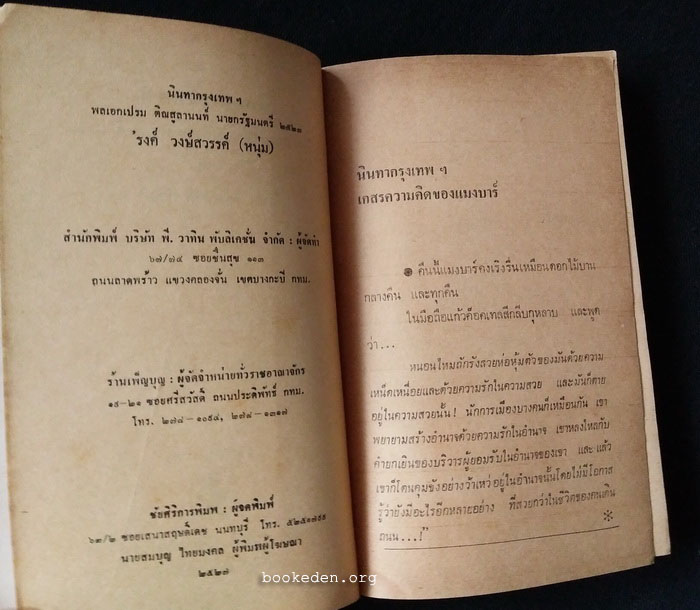 นินทากรุงเทพ ๆ
พลเอกเปรม ติณสูลานนท์ นายกรัฐมนตรี ๒๕๒๓
'รงค์ วงษ์สวรรค์ (หนุ่ม)
สำนักพิมพ์ บริษัท พี. วาทิน พับลิเคชั่น จำกัด : ผู้จัดทำ
๖๗/๗๔ ซอยชื่นสุข ๑๑๓
ถนนลาดพร้าว แขวงคลองจั่น เขตบางกะปิ กทม.
ร้านเพ็ญบุญ : ผู้จัดจำหน่ายทั่วราชอาณาจักร
๑๙-๒๑ ซอยศรีสวัสดิ์ ถนนประดิพัทธ์ กทม.
โทร. ๒๗๘-๑๐๕๔, ๒๗๘-๑๓๑๗
ชัยศิริการพิมพ์ : ผู้จัดพิมพ์
ซอยเสนาสฤษดิ์เดช นนทบุรี โทร.
นายสมบุญ ไทยมงคล ผู้พิมพ์ผู้โฆษณา
๒๕๒๗
นินทากรุงเทพ ๆ
เกสรความคิดของแมงบาร์
๏ คืนนี้แมงบาร์คงเริงรื่นเหมือนดอกไม้บาน
กลางคืน และทุกคืน
ในมือถือแก้วค็อคเทลสีกลีบกุหลาบ และพูด
ว่า...
หนอนไหมถักรังสวยห่อหุ้มตัวของมันด้วยความ
เหน็ดเหนื่อยและด้วยความรักในความสวย และมันก็ตาย
อยู่ในความสวยนั้น! นักการเมืองบางคนก็เหมือนกัน เขา
พยายามสร้างอำนาจด้วยความรักในอำนาจ เขาหลงใหลกับ
คำยกเยินของบริวารผู้ยอมรับในอำนาจของเขา และแล้ว
เขาก็โดนคุมขังอย่างว้าเหว่อยู่ในอำนาจนั้นโดยไม่มีโอกาส
รู้ว่ายังมีอะไรอีกหลายอย่าง ที่สวยกว่าในชีวิตของคนเดิน
ถนน...!" *
bookeden.org